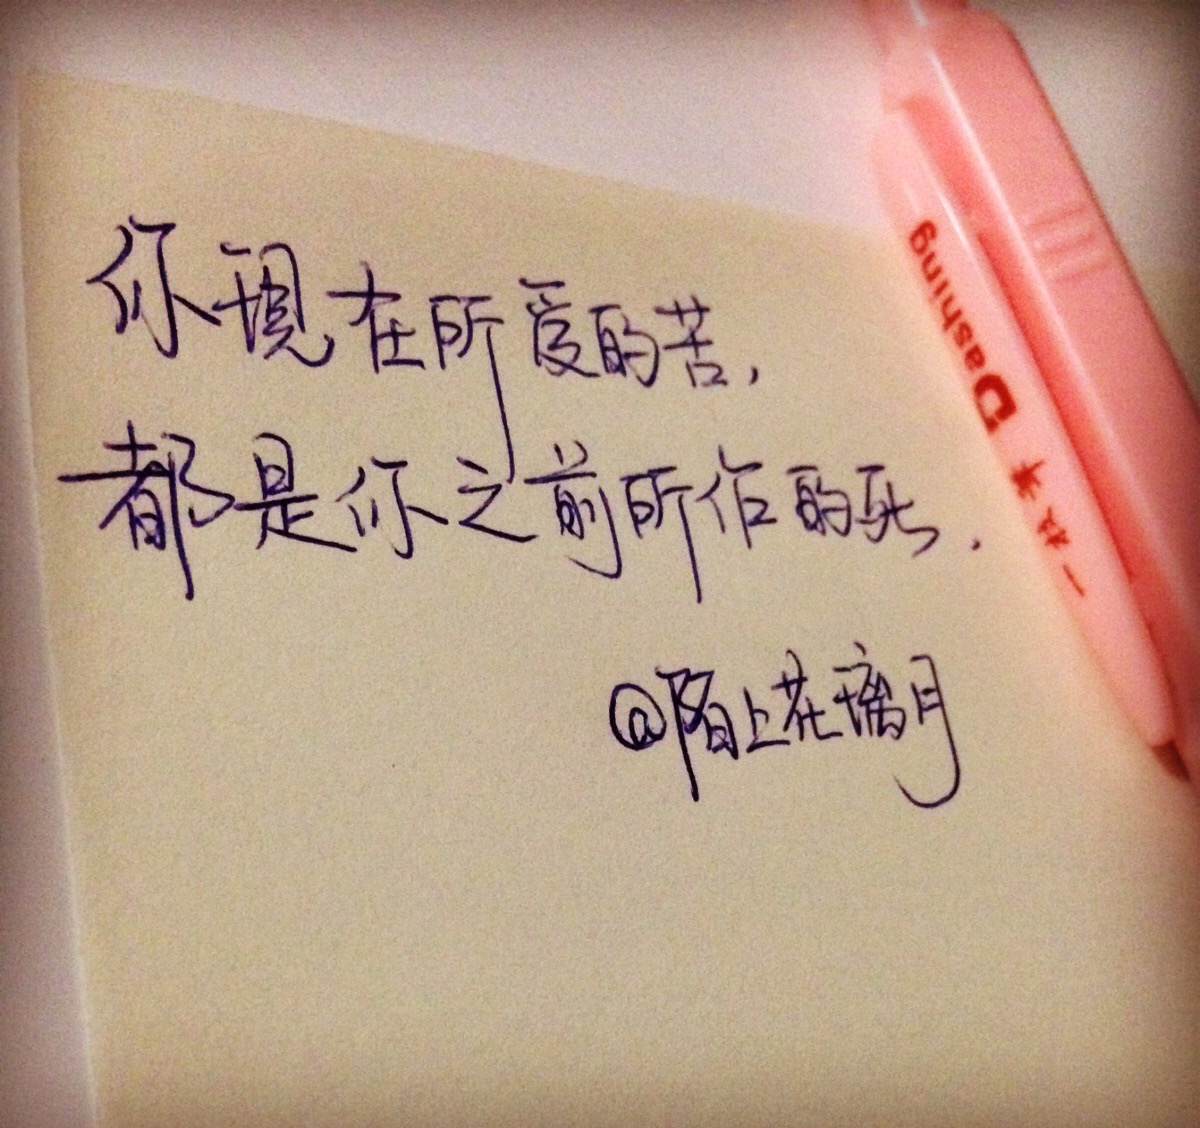 你现在所受的苦，
都是你之前所作的死.
@陌上花璃月
Dashing